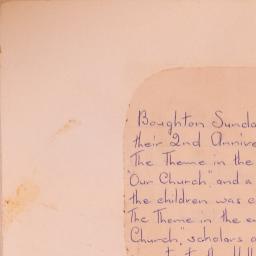 Boughton Sunda
their 2nd Annive
The Theme in the
"Our Church", and a
the children was c
The Theme in the e
Church," scholars a